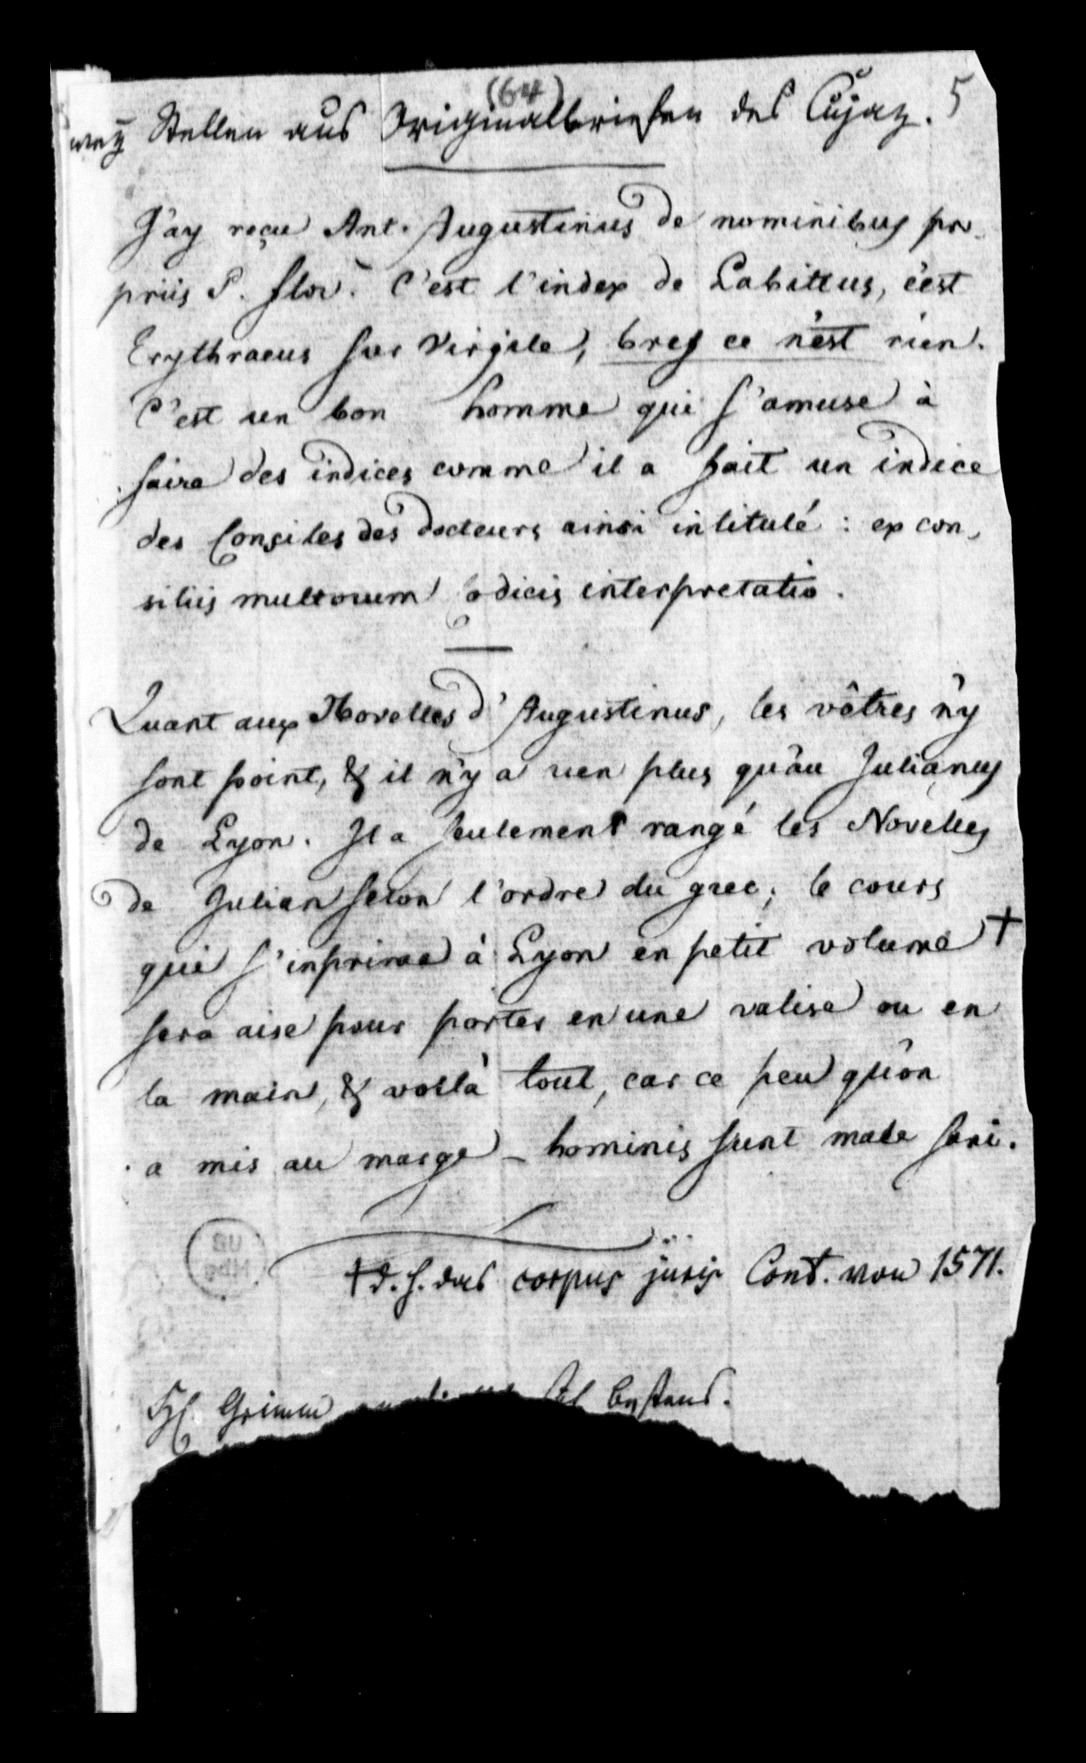 (64)
wey Stellen aus Originalbriefen des Cujaz. 5
J'ay reçu Ant. Augustinus de nominibus pro-
priis P. flor. C'est l'index de Labittus, c'est
Erythraeus sur Virgile, bref ce n'est rien.
C'est un bon homme qui s'amuse à
faire des indices comme il a fait un indice
des Consiles des docteurs ainsi intitulé : ex con-
siliis multorum Codicis interpretatio.
Quant aux Novelles d'Augustinus, les vôtres n'y
sont point, & il n'y a rien plus qu'au Julianus
de Lyon. Il a seulement rangé les Novelles
de Julian selon l'ordre du grec; le cours
qui s'inprime à Lyon en petit volume †
sera aise pour porter en une valise ou en
la main, & voilà tout, car ce peu qu'on
a mis au marge - hominis sunt male sani.
† d. h. das corpus juris Cont. von 1571.
Grimm